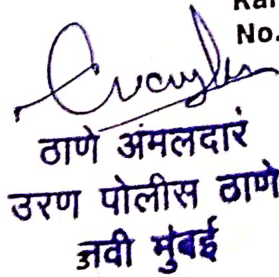 No.
ठाणे अंमलदार
उरण पोलीस ठाणे
नवी मुंबई